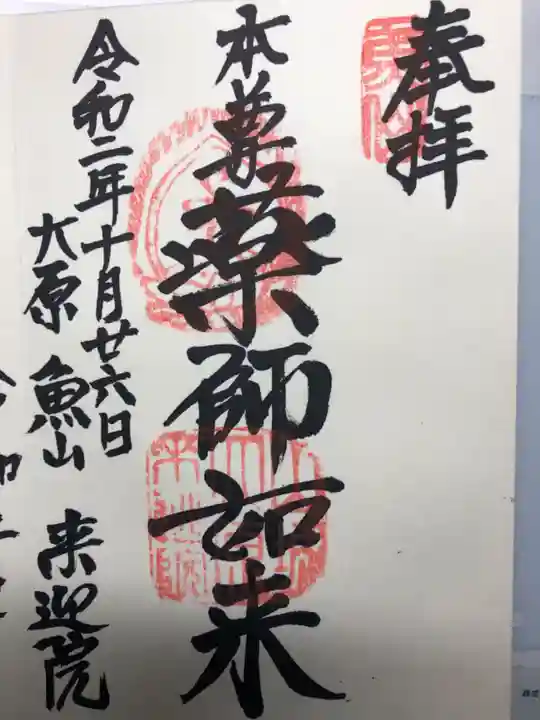 奉拝
本尊 薬師如来
令和二年十月廿六日
大原 魚山 来迎院